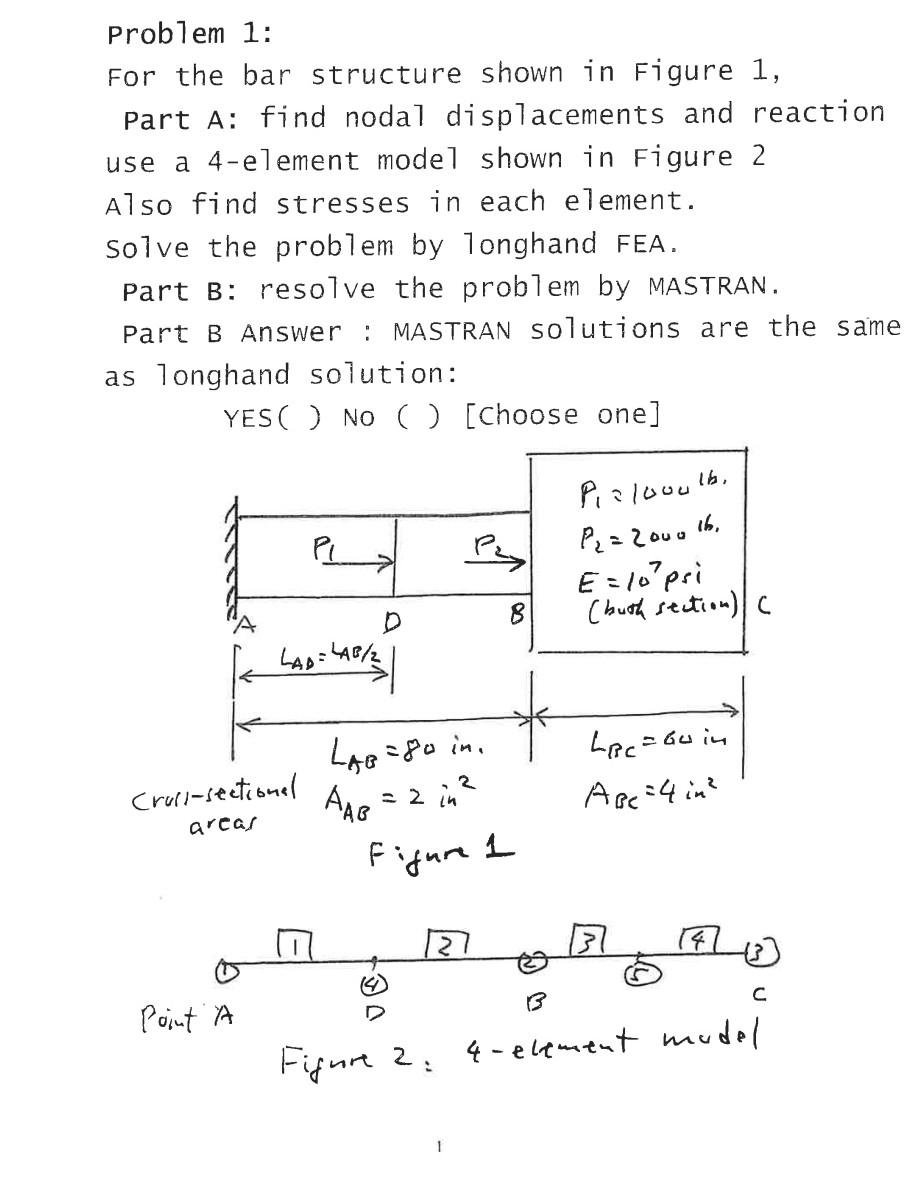 Problem 1:
For the bar structure shown in Figure 1,
Part A: find nodal displacements and reaction
use a 4-element model shown in Figure 2
Also find stresses in each element.
Solve the problem by longhand FEA.
Part B: resolve the problem by MASTRAN.
Part B Answer : MASTRAN solutions are the same
as longhand solution:
YES( ) No ( ) [Choose one]
P₁ = 1000 lb.
P₂ = 2000 lb.
E = 10⁷ psi
(both section)
P₁
P₂
A
D
B
C
L_AD = L_AB/2
L_AB = 80 in.
L_BC = 60 in
Cross-sectional
areas
A_AB = 2 in²
A_BC = 4 in²
Figure 1
1
2
3
4
①
④
②
⑤
③
Point A
D
B
C
Figure 2: 4-element model
1